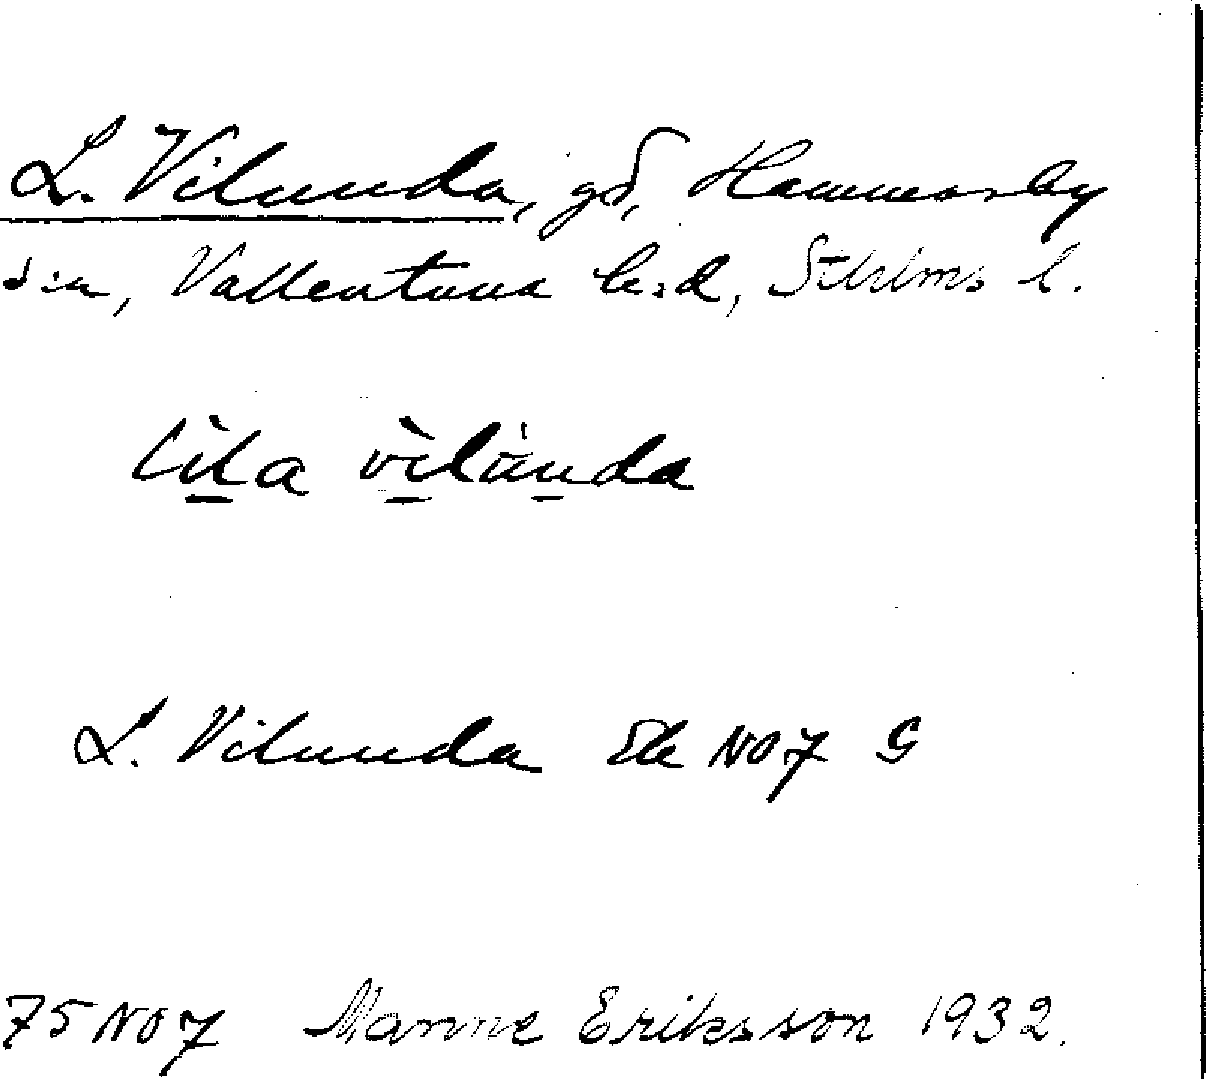 L. Vilunda, gd, Hammarby
s:n, Vallentuna h:d, Sthlms l.
lìla vìlúnda
L. Vilunda Ek NO7 G
75 NO7 Manne Eriksson 1932.